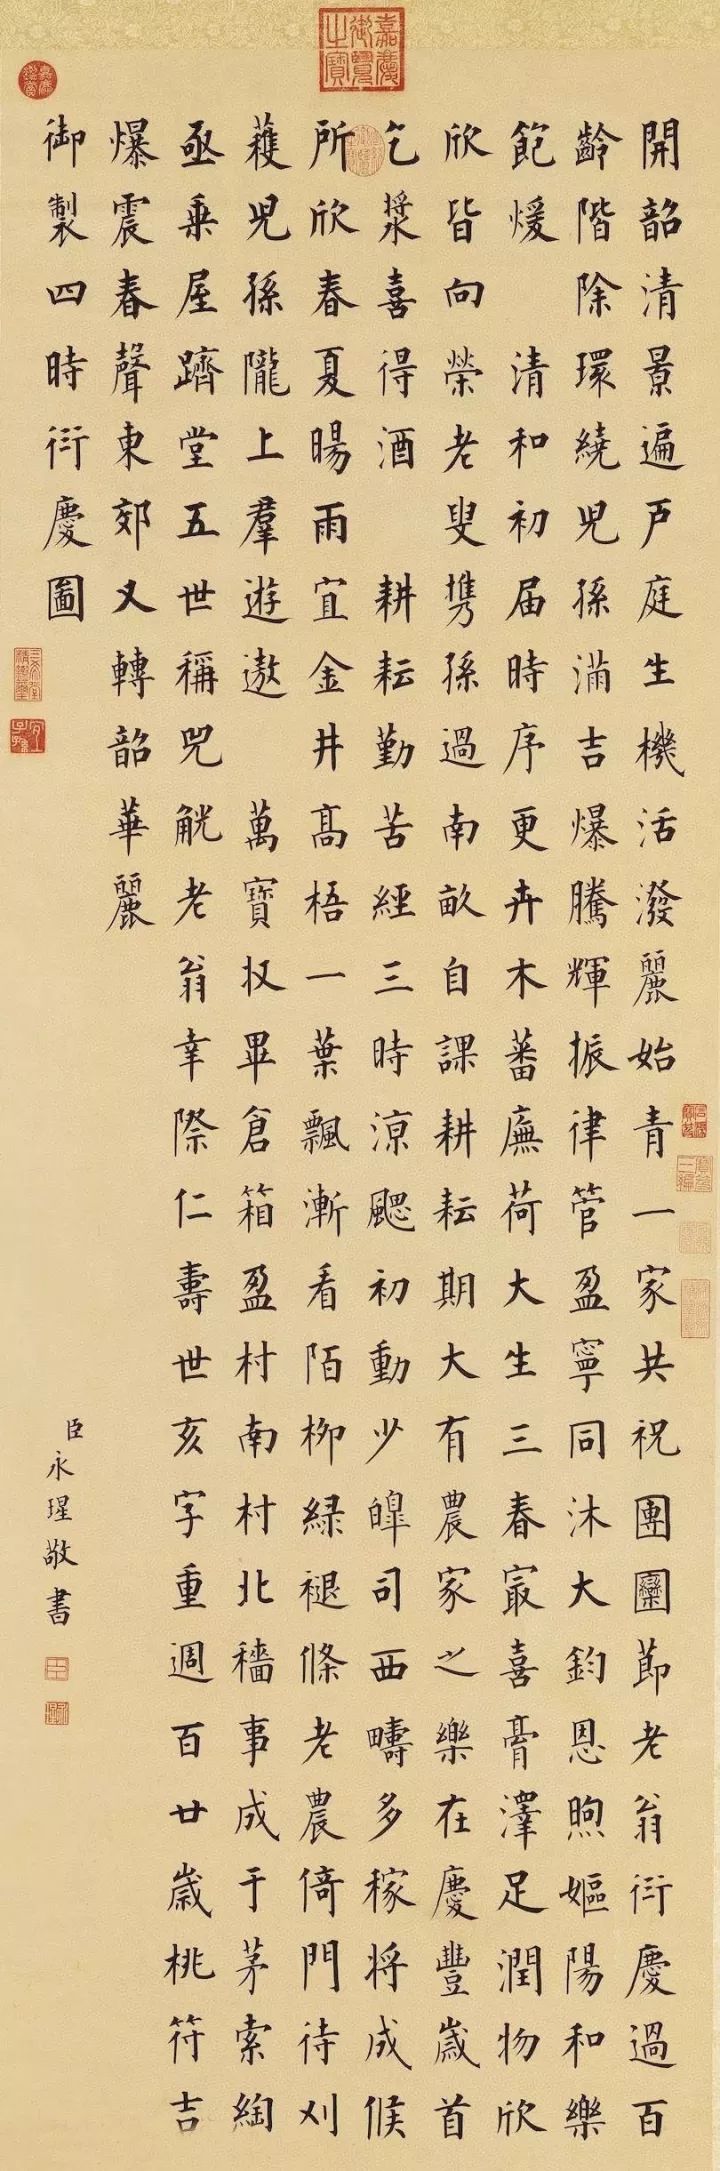 嘉慶御覽之寶
開韶清景遍戶庭生機活潑麗始青一家共祝團圞節老翁衍慶過百
齡階除環繞兒孫滿吉爆騰輝振律管盈寧同沐大鈞恩煦嫗陽和樂
飽煖 清和初届時序更卉木蕃廡荷大生三春冣喜膏澤足潤物欣
欣皆向榮老叟攜孫過南畝自課耕耘期大有農家之樂在慶豐歲首
乞漿喜得酒 耕耘勤苦經三時涼颸初動少皞司西疇多稼將成候
所欣春夏暘雨宜金井高梧一葉飄漸看陌柳綠褪條老農倚門待刈
穫兒孫隴上羣遊遨 萬寶收畢倉箱盈村南村北穡事成于茅索綯
亟乘屋躋堂五世稱兕觥老翁幸際仁壽世亥字重週百廿歲桃符吉
爆震春聲東郊又轉韶華麗
御製四時衍慶圖
臣永瑆敬書
嘉慶鑑賞
三希堂精鑑璽
宜子孫